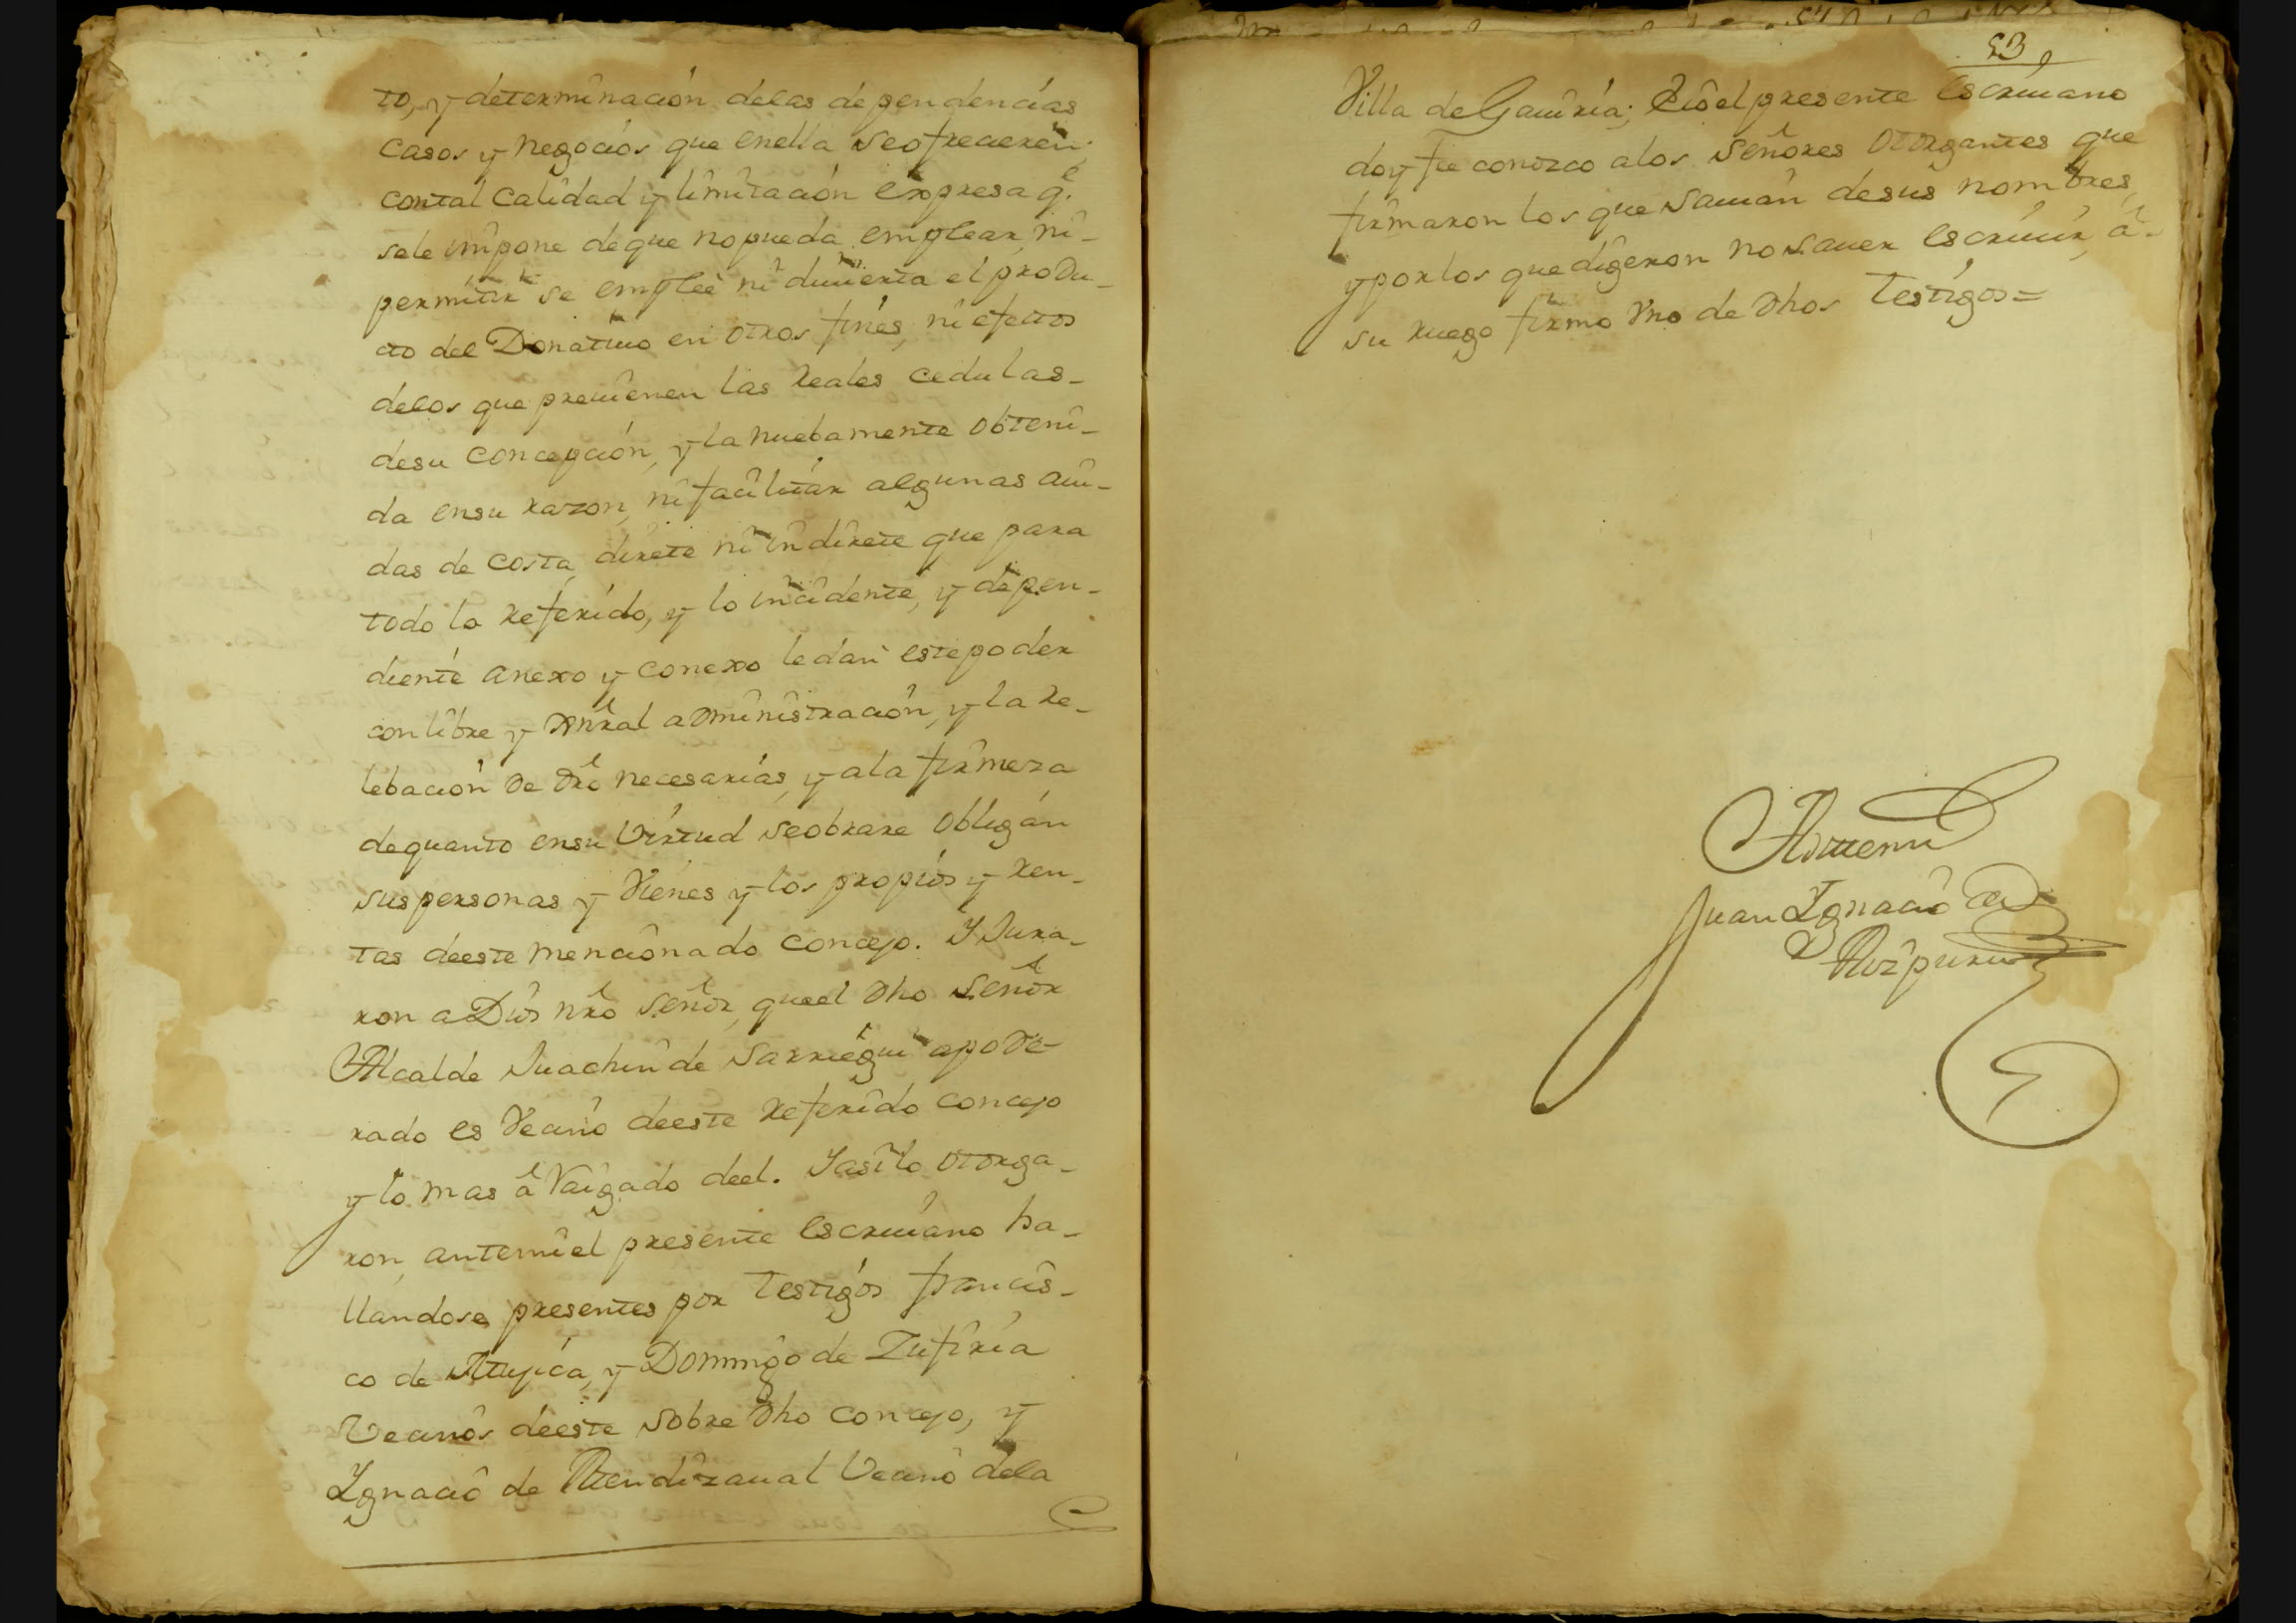 to, y determinación delas dependencias
casos y negocios que enella se ofrecieren;
contal calidad y limitación expresa q.e
sele impone de que no pueda emplear, ni-
permitir se emplee ni divierta el produ-
cto del Donativo en otros fines, ni efectos
delos que previenen las Reales cedulas-
desu concepción, y la nuebamente obteni-
da ensu razon, ni facilitar algunas aiu-
das de costa, direte ni indirete que para
todo lo referido, y lo incidente, y depen-
diente anexo y conexo ledan este poder
con libre y xnral administración, y la re-
lebación de dro necesarias, y ala firmeza
dequanto ensu Virtud seobrare obligan
sus personas y Vienes y los propios y ren-
tas deeste mencionado concejo. Y Jura-
ron a Dios nro señor, queel dho señor
Alcalde Juachin de Sarriegui apode-
rado es Vecino deeste referido concejo
y lo mas aRaigado deel. Y asilo otorga-
ron, antemi el presente escrivano ha-
llandose presentes por testigos francis-
co de Atujica, y Domingo de Zufiria
Vecinos deeste sobre dho concejo, y
Ygnacio de Mendizaval Vecino dela
53
Villa de Gaviria; E io el presente escrivano
doy fee conozco alos señores otorgantes que
firmaron los que savian desus nombres,
y porlos que digeron no saver escrivir, a-
su ruego firmo Vno de dhos testigos=
Antemi
Juan Ygnacio de